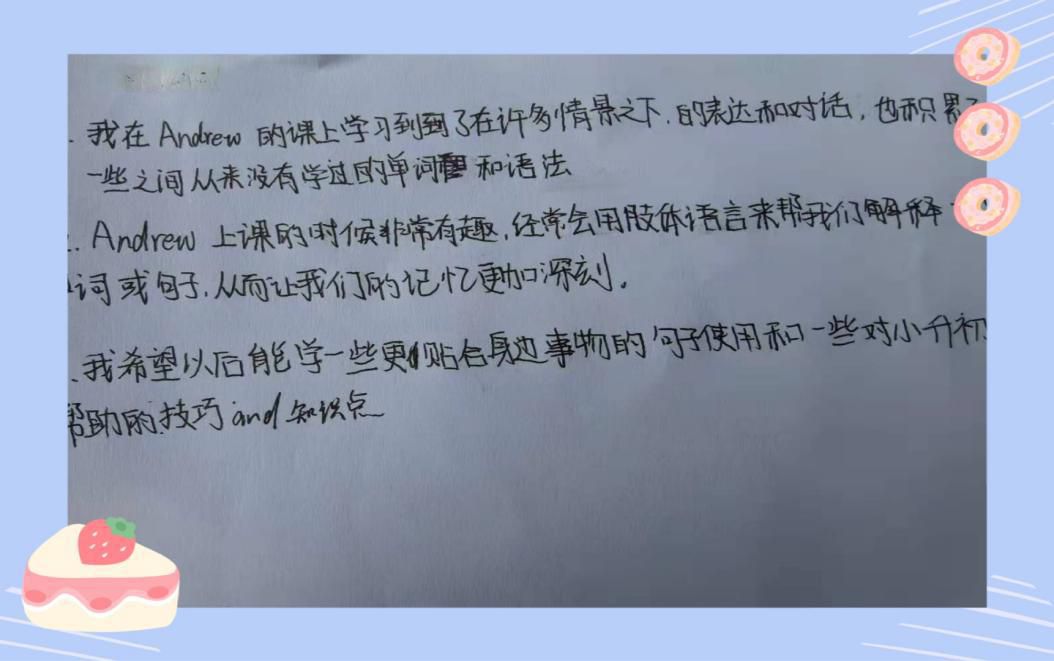 . 我在 Andrew 的课上学习到到了在许多情景之下,的表达和对话,也积累了
一些之间从来没有学过的单词 和语法
. Andrew 上课的时候非常有趣,经常会用肢体语言来帮我们解释
词或句子,从而让我们的记忆更加深刻。
. 我希望以后能学一些更贴合身边事物的句子使用和一些对小升初
帮助的技巧 and 知识点